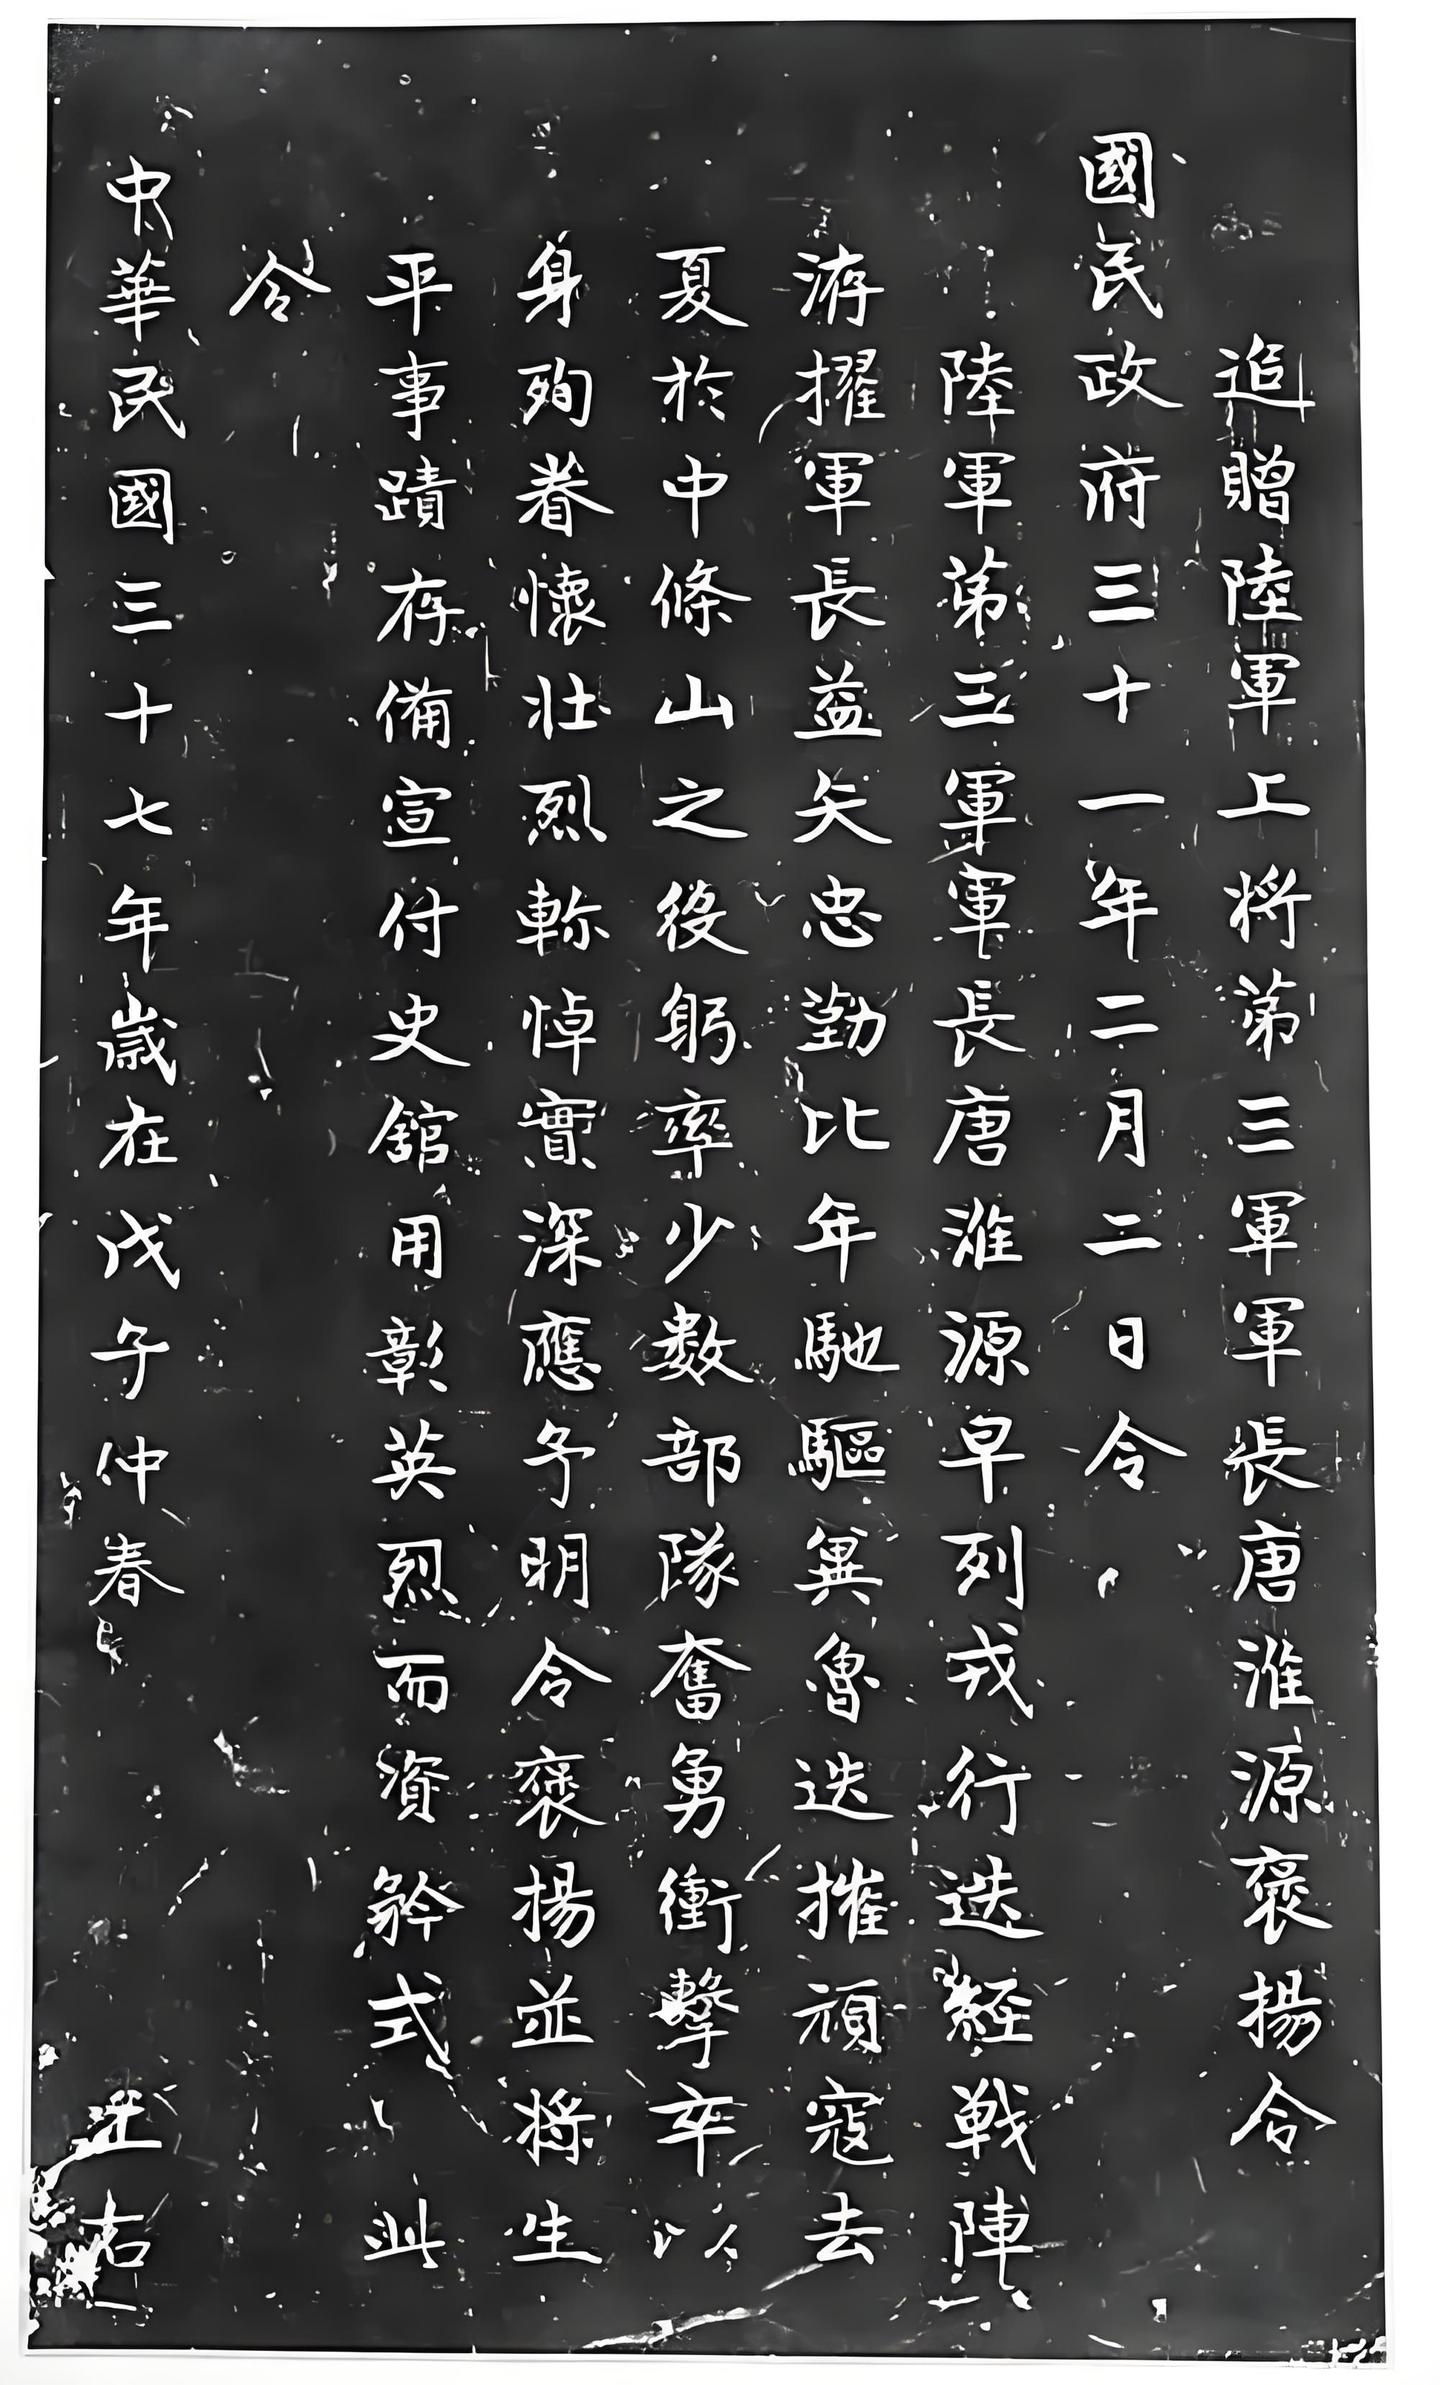 追贈陸軍上将第三軍軍長唐淮源褒揚令
國民政府三十一年二月二日令
陸軍第三軍軍長唐淮源早列戎行迭經戰陣
洊擢軍長益矢忠勤比年馳驅冀魯迭摧頑寇去
夏於中條山之役躬率少數部隊奮勇衝擊卒以
身殉眷懷壯烈軫悼實深應予明令褒揚並將生
平事蹟存備宣付史館用彰英烈而資矜式此
令
中華民國三十七年歲在戊子仲春 右